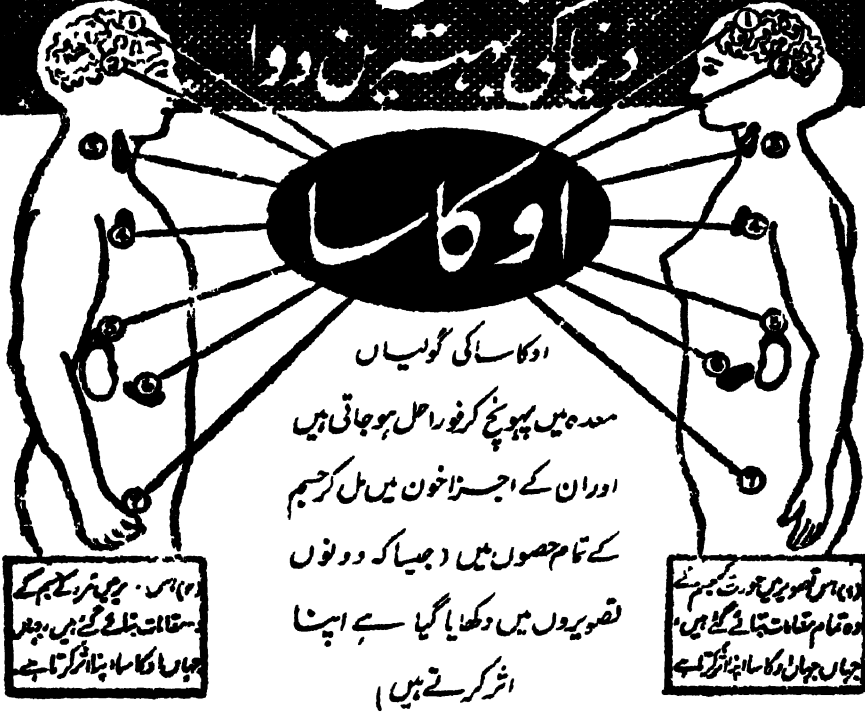 دنیا کی بہترین دوا
اوکاسا
اوکاسا کی گولیاں
معدہ میں پہونچ کر فوراً حل ہو جاتی ہیں
اور ان کے اجزا خون میں مل کر جسم
کے تمام حصوں میں (جیسا کہ دونوں
تصویروں میں دکھایا گیا ہے اپنا
اثر کرتے ہیں)
(۱) اس تصویر میں عورت کے جسم کے
وہ تمام مقامات بتائے گئے ہیں،
جہاں جہاں اوکاسا اپنا اثر کرتا ہے
(۲) اس میں مرد کے جسم کے
مقامات بتائے گئے ہیں، جہاں
جہاں اوکاسا اپنا اثر کرتا ہے